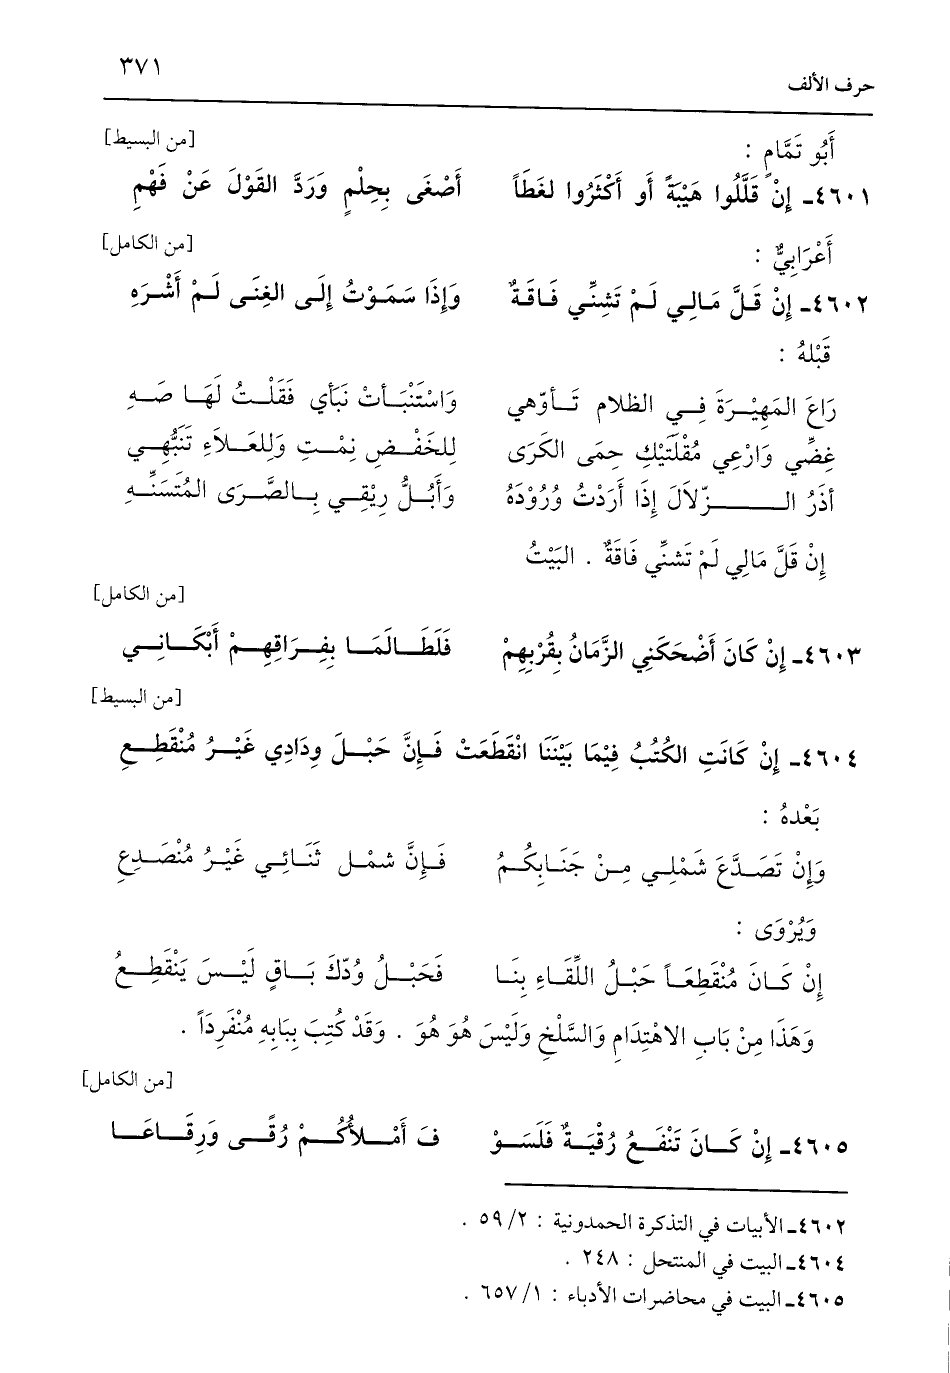 حرف الألف ٣٧١
أَبُو تَمَّامٍ : [من البسيط]
٤٦٠١ـ إِنْ قَلَّلُوا هَيْبَةً أَو أَكْثَرُوا لغَطَاً أَصْغَى بِحِلْمٍ وَرَدَّ القَوْلَ عَنْ فَهْمِ
أَعْرَابِيٌّ : [من الكامل]
٤٦٠٢ـ إِنْ قَلَّ مَالِي لَمْ تَشِنِّي فَاقَةٌ وَإِذَا سَمَوْتُ إِلَى الغِنَى لَمْ أَشْرَهِ
قَبْلهُ :
رَاعَ المَهِيْرَةَ فِي الظلام تَأوّهي وَاسْتَنْبَأتْ نَبَأي فَقَلْتُ لَهَا صَهِ
غِضِّي وَارْعِي مُقْلَتَيْكِ حِمَى الكَرَى لِلخَفْضِ نِمْتِ وَلِلعَلاَءِ تَنَبُّهِي
أذَرُ الزّلاَلَ إِذَا أَرَدْتُ وُرُوْدَهُ وَأَبُلُّ رِيْقِي بِالصَّرَى المُتَسَنِّهِ
إِنْ قَلَّ مَالِي لَمْ تَشنِّي فَاقَةٌ . البَيْتُ
[من الكامل]
٤٦٠٣ـ إِنْ كَانَ أَضْحَكَنِي الزَّمَانُ بِقُرْبِهِمْ فَلَطَالَمَا بِفِرَاقِهِمْ أَبْكَانِي
[من البسيط]
٤٦٠٤ـ إِنْ كَانَتِ الكُتُبُ فِيْمَا بَيْنَنَا انْقَطَعَتْ فَإِنَّ حَبْلَ وِدَادِي غَيْرُ مُنْقَطِعِ
بَعْدهُ :
وَإِنْ تَصَدَّعَ شَمْلِي مِنْ جَنَابِكُمُ فَإِنَّ شمْل ثَنَائِي غَيْرُ مُنْصَدِعِ
وَيُرْوَى :
إِنْ كَانَ مُنْقَطِعَاً حَبْلُ اللِّقَاءِ بِنَا فَحَبْلُ وُدّكَ بَاقٍ لَيْسَ يَنْقَطِعُ
وَهَذَا مِنْ بَابِ الاهْتِدَامِ وَالسَّلْخِ وَلَيْسَ هُوَ هُوَ . وَقَدْ كُتِبَ بِبَابِهِ مُنْفَرِدَاً .
[من الكامل]
٤٦٠٥ـ إِنْ كَانَ تَنْفَعُ رُقْيَةٌ فَلَسَوْ فَ أَمْلأُكُمْ رُقًى وَرِقَاعَا
٤٦٠٢ـ الأبيات في التذكرة الحمدونية : ٥٩/٢ .
٤٦٠٤ـ البيت في المنتحل : ٢٤٨ .
٤٦٠٥ـ البيت في محاضرات الأدباء : ٦٥٧/١ .